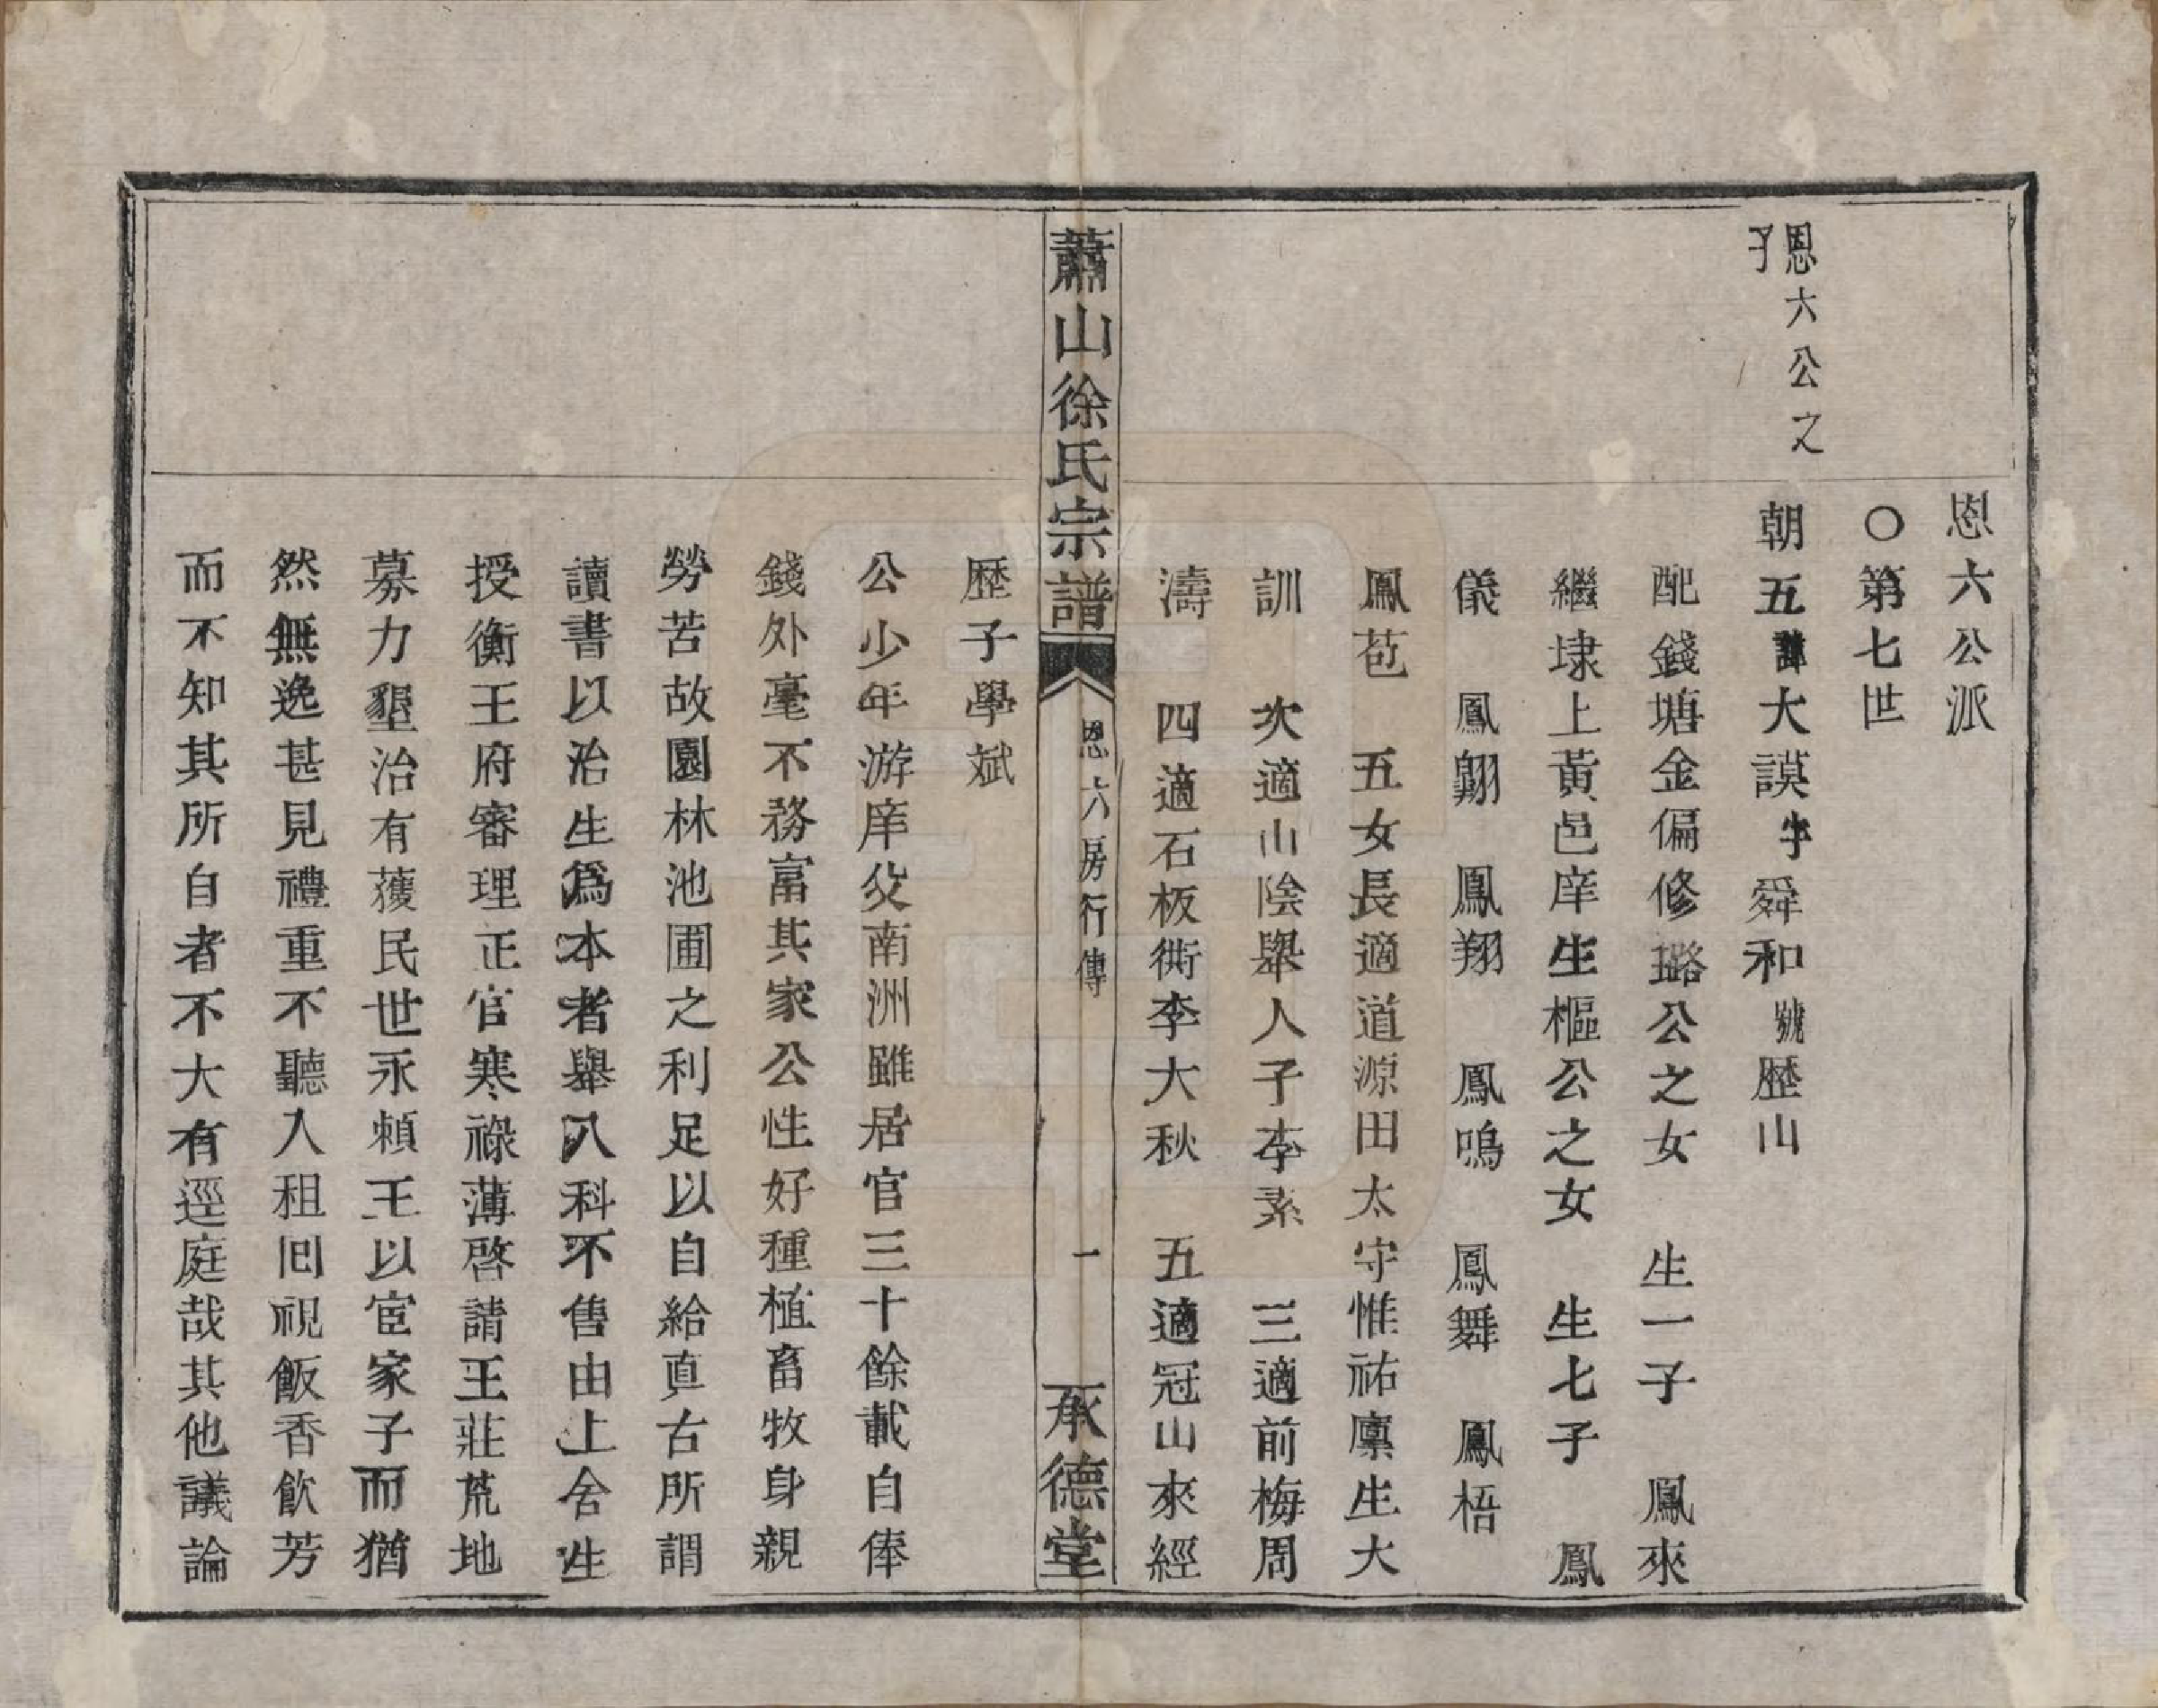 恩六公派
○第七世
恩六公之
子
朝五諱大謨字舜和號歷山
配錢塘金偏修璐公之女　生一子　鳳來
繼埭上黃邑庠生樞公之女　生七子　鳳
儀　鳳翺　鳳翔　鳳鳴　鳳舞　鳳梧
鳳苞　五女長適道源田太守惟祐廪生大
訓　次適山陰舉人子李素　三適前梅周
濤　四適石板衖李大秋　五適冠山來經
蕭山徐氏宗譜　恩六房行傳　一　承德堂
歷子學斌
公少年游庠父南洲雖居官三十餘載自俸
錢外毫不務富其家公性好種植畜牧身親
勞苦故園林池圃之利足以自給直古所謂
讀書以治生爲本者舉八科不售由上舍生
授衡王府審理正官寒祿薄啓請王莊荒地
募力墾治有蒦民世永賴王以宦家子而猶
然無逸甚見禮重不聽入租囘視飯香飲芳
而不知其所自者不大有逕庭哉其他議論